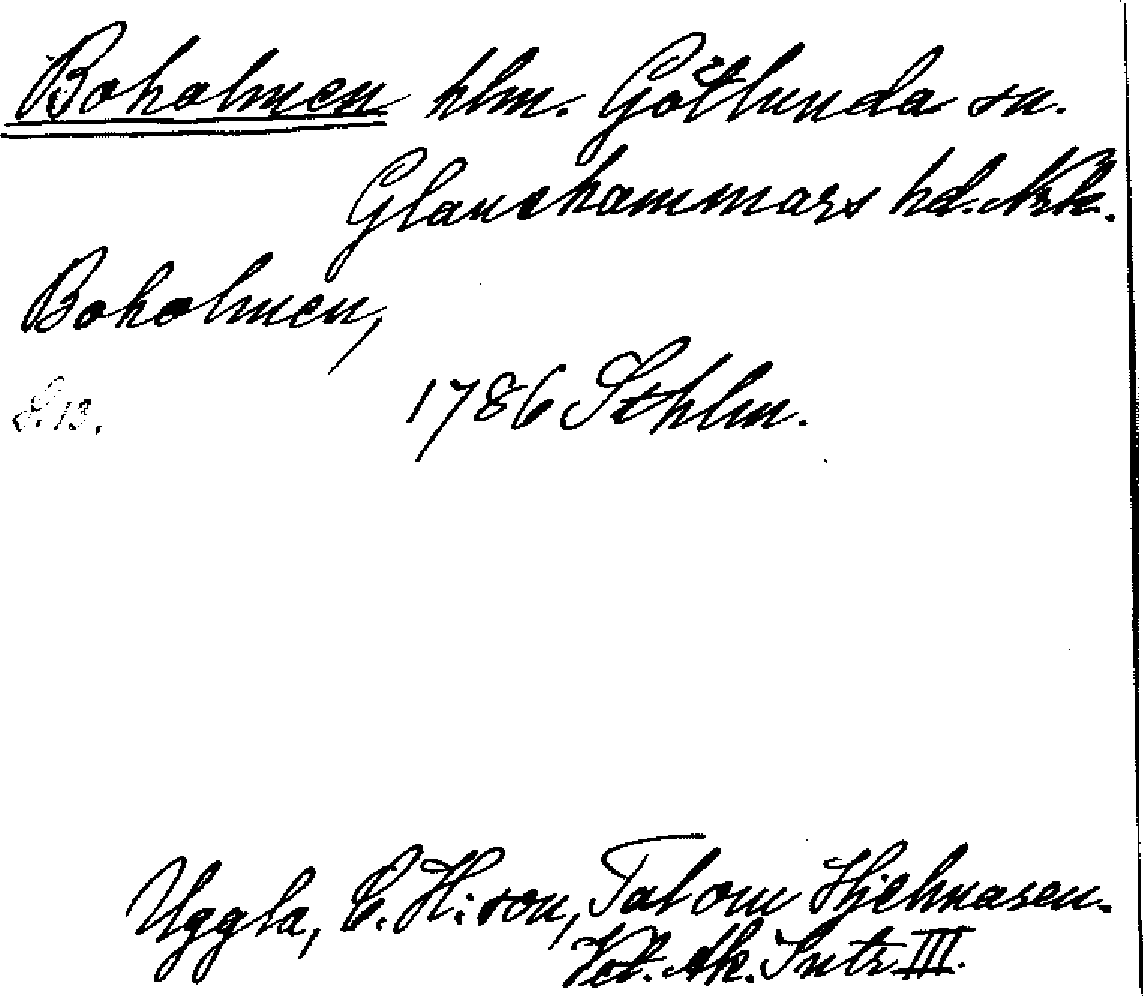 Boholmen hlm. Götlunda sn.
Glanshammars hd. Nrk.
Boholmen,
S. 13. 1786 Sthlm.
Uggla, C. H:son, Tal om Hjelmaren.
Vet. Ak. Intr. III.